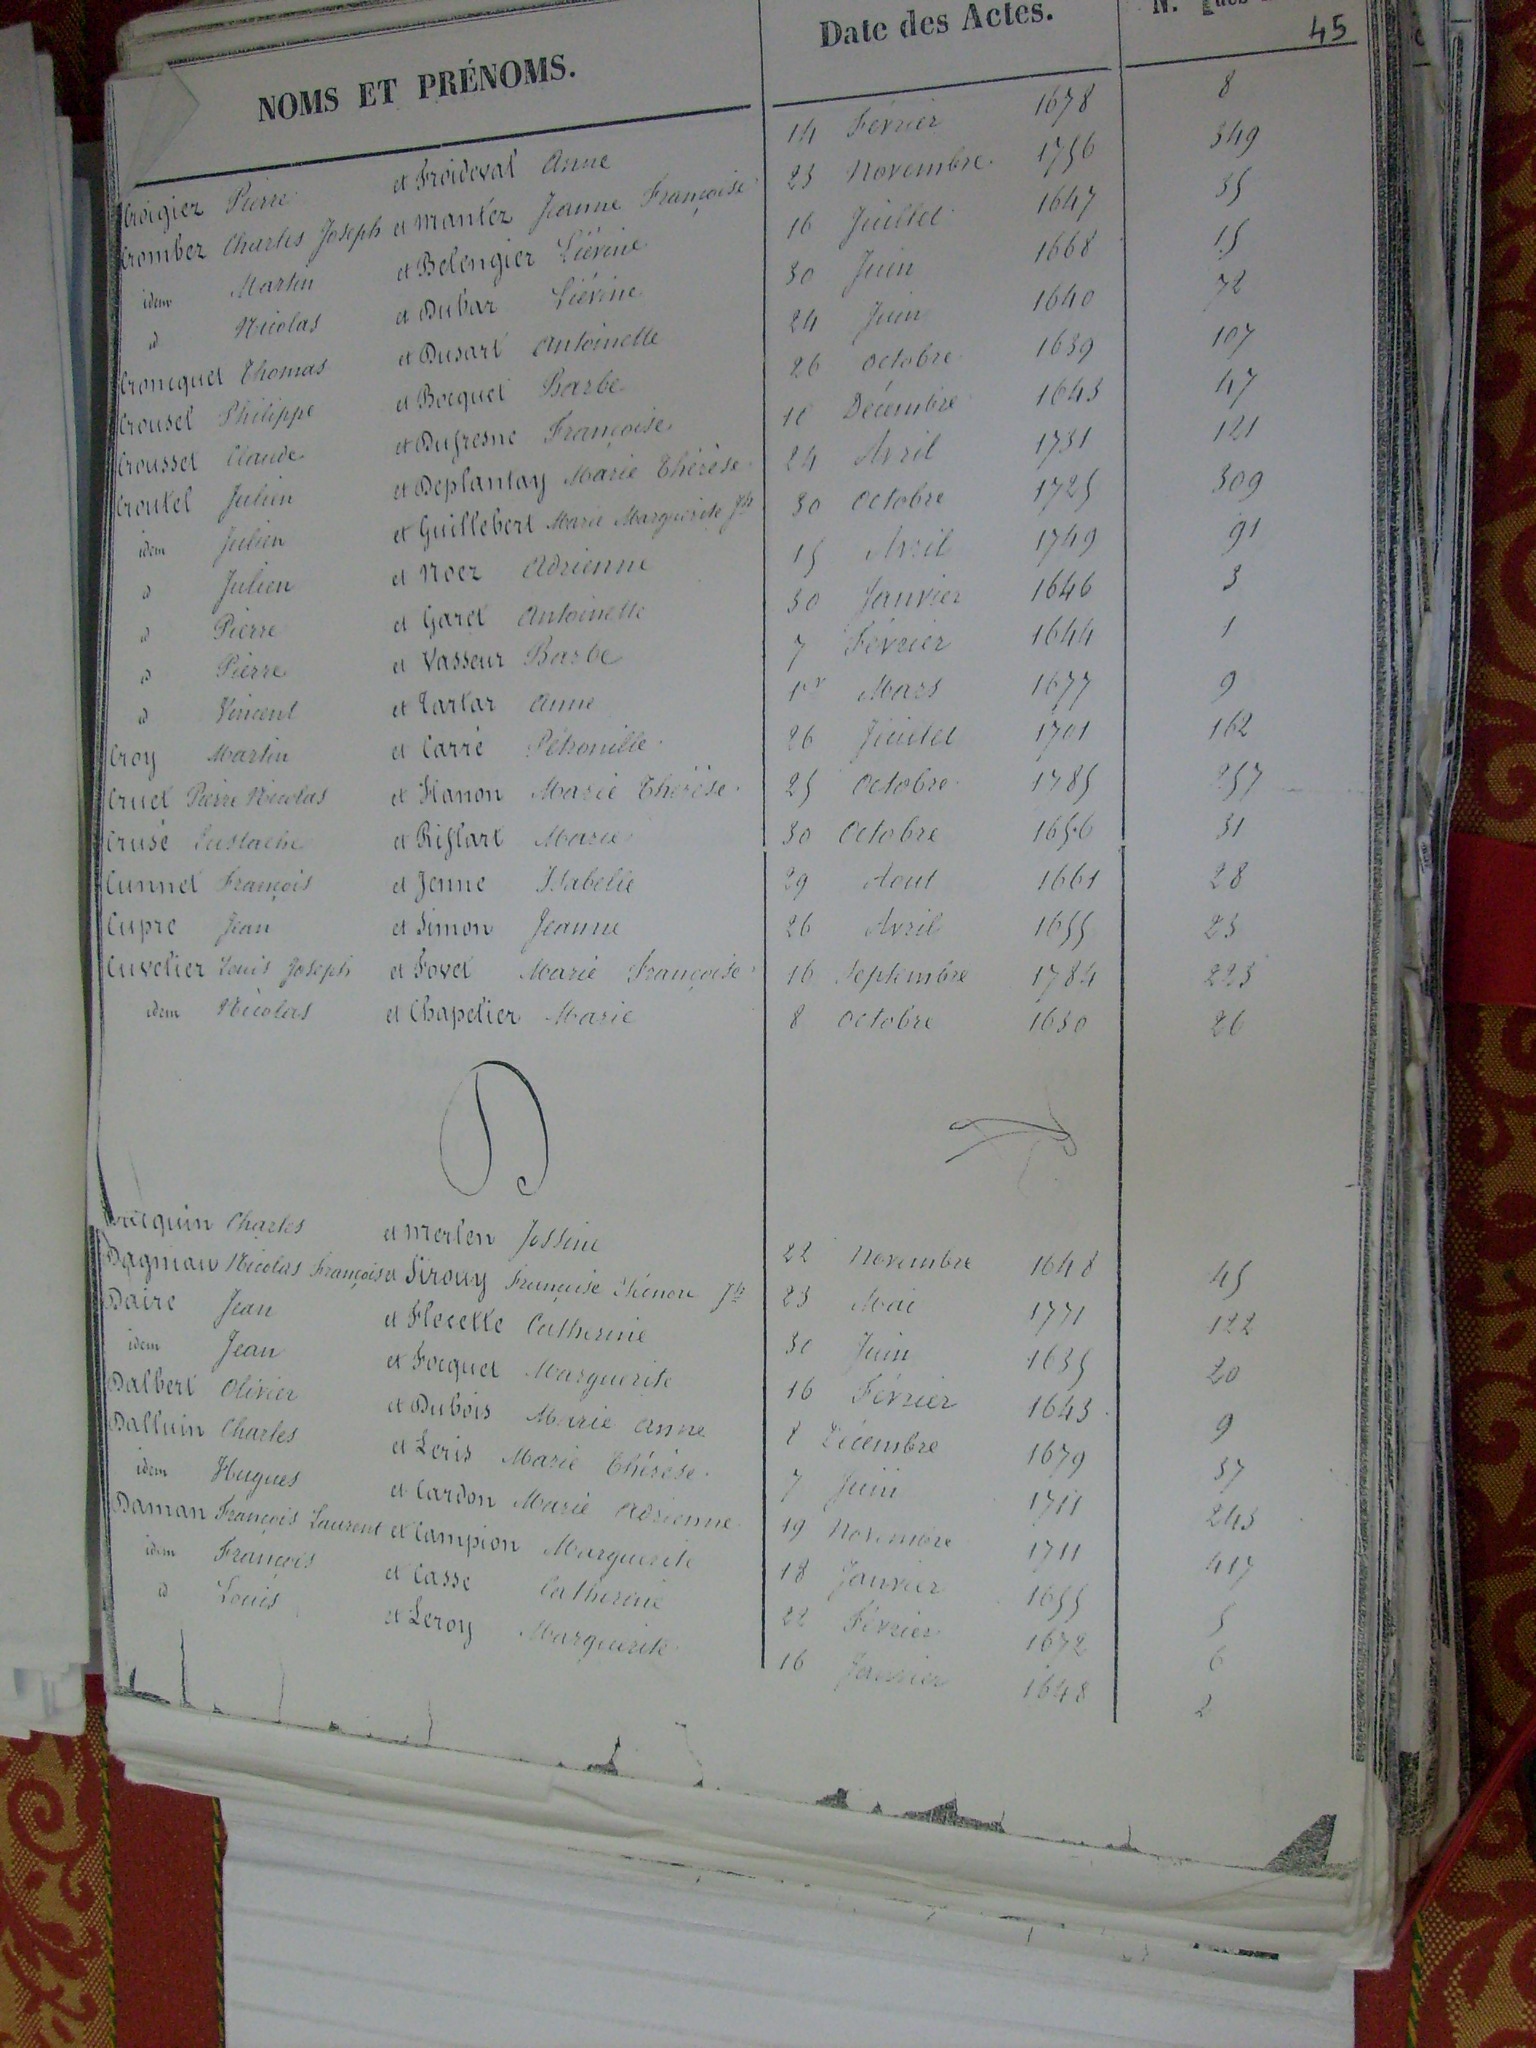 NOMS ET PRÉNOMS. Date des Actes. N.
45
Croigier Pierre et Froideval Anne 14 Février 1678 8
Crombez Charles Joseph et Mantez Jeanne Françoise 23 Novembre 1756 349
idem Martin et Belengier Liévine 16 Juillet 1647 35
d Nicolas et Dubar Liévine 30 Juin 1668 15
Croncquet Thomas et Dusart Antoinette 24 Juin 1640 72
Crousel Philippe et Bocquet Barbe 26 Octobre 1639 107
Crousset Claude et Dufresne Françoise 16 Décembre 1643 47
Croutel Julien et Deplantay Marie Thérèse 24 Avril 1731 121
idem Julien et Guillebert Marie Marguerite Jh 30 Octobre 1725 309
d Julien et Noez Adrienne 15 Avril 1749 91
d Pierre et Garet Antoinette 30 Janvier 1646 3
d Pierre et Vasseur Barbe 7 Février 1644 1
d Vincent et Tartar Anne 1er Mars 1677 9
Croy Martin et Carré Pétronille 26 Juillet 1701 162
Cruel Pierre Nicolas et Hanon Marie Thérèse 25 Octobre 1785 257
Crusé Eustache et Riflart Marie 30 Octobre 1656 31
Cunnet François et Jenne Isabelle 29 Aout 1661 28
Cupre Jean et Simon Jeanne 26 Avril 1655 23
Cuvelier Louis Joseph et Fovet Marie Françoise 16 Septembre 1784 223
idem Nicolas et Chapelier Marie 8 Octobre 1630 26
D
Charles et Merlen Jossine 22 Novembre 1648 45
Dagniau Nicolas François et Sirouy Françoise Jh 23 Mai 1771 122
Daire Jean et Flecelle Catherine 30 Juin 1635 20
idem Jean et Focquet Marguerite 16 Février 1643 9
Dalbert Olivier et Dubois Marie Anne 8 Décembre 1679 37
Dalluin Charles et Leris Marie Thérèse 7 Juin 1711 243
idem Hugues et Cardon Marie Adrienne 19 Novembre 1711 417
Daman François Laurent et Campion Marguerite 18 Janvier 1655 5
idem François et Casse Catherine 22 Février 1672 6
d Louis et Leroy Marguerite 16 Janvier 1648 2